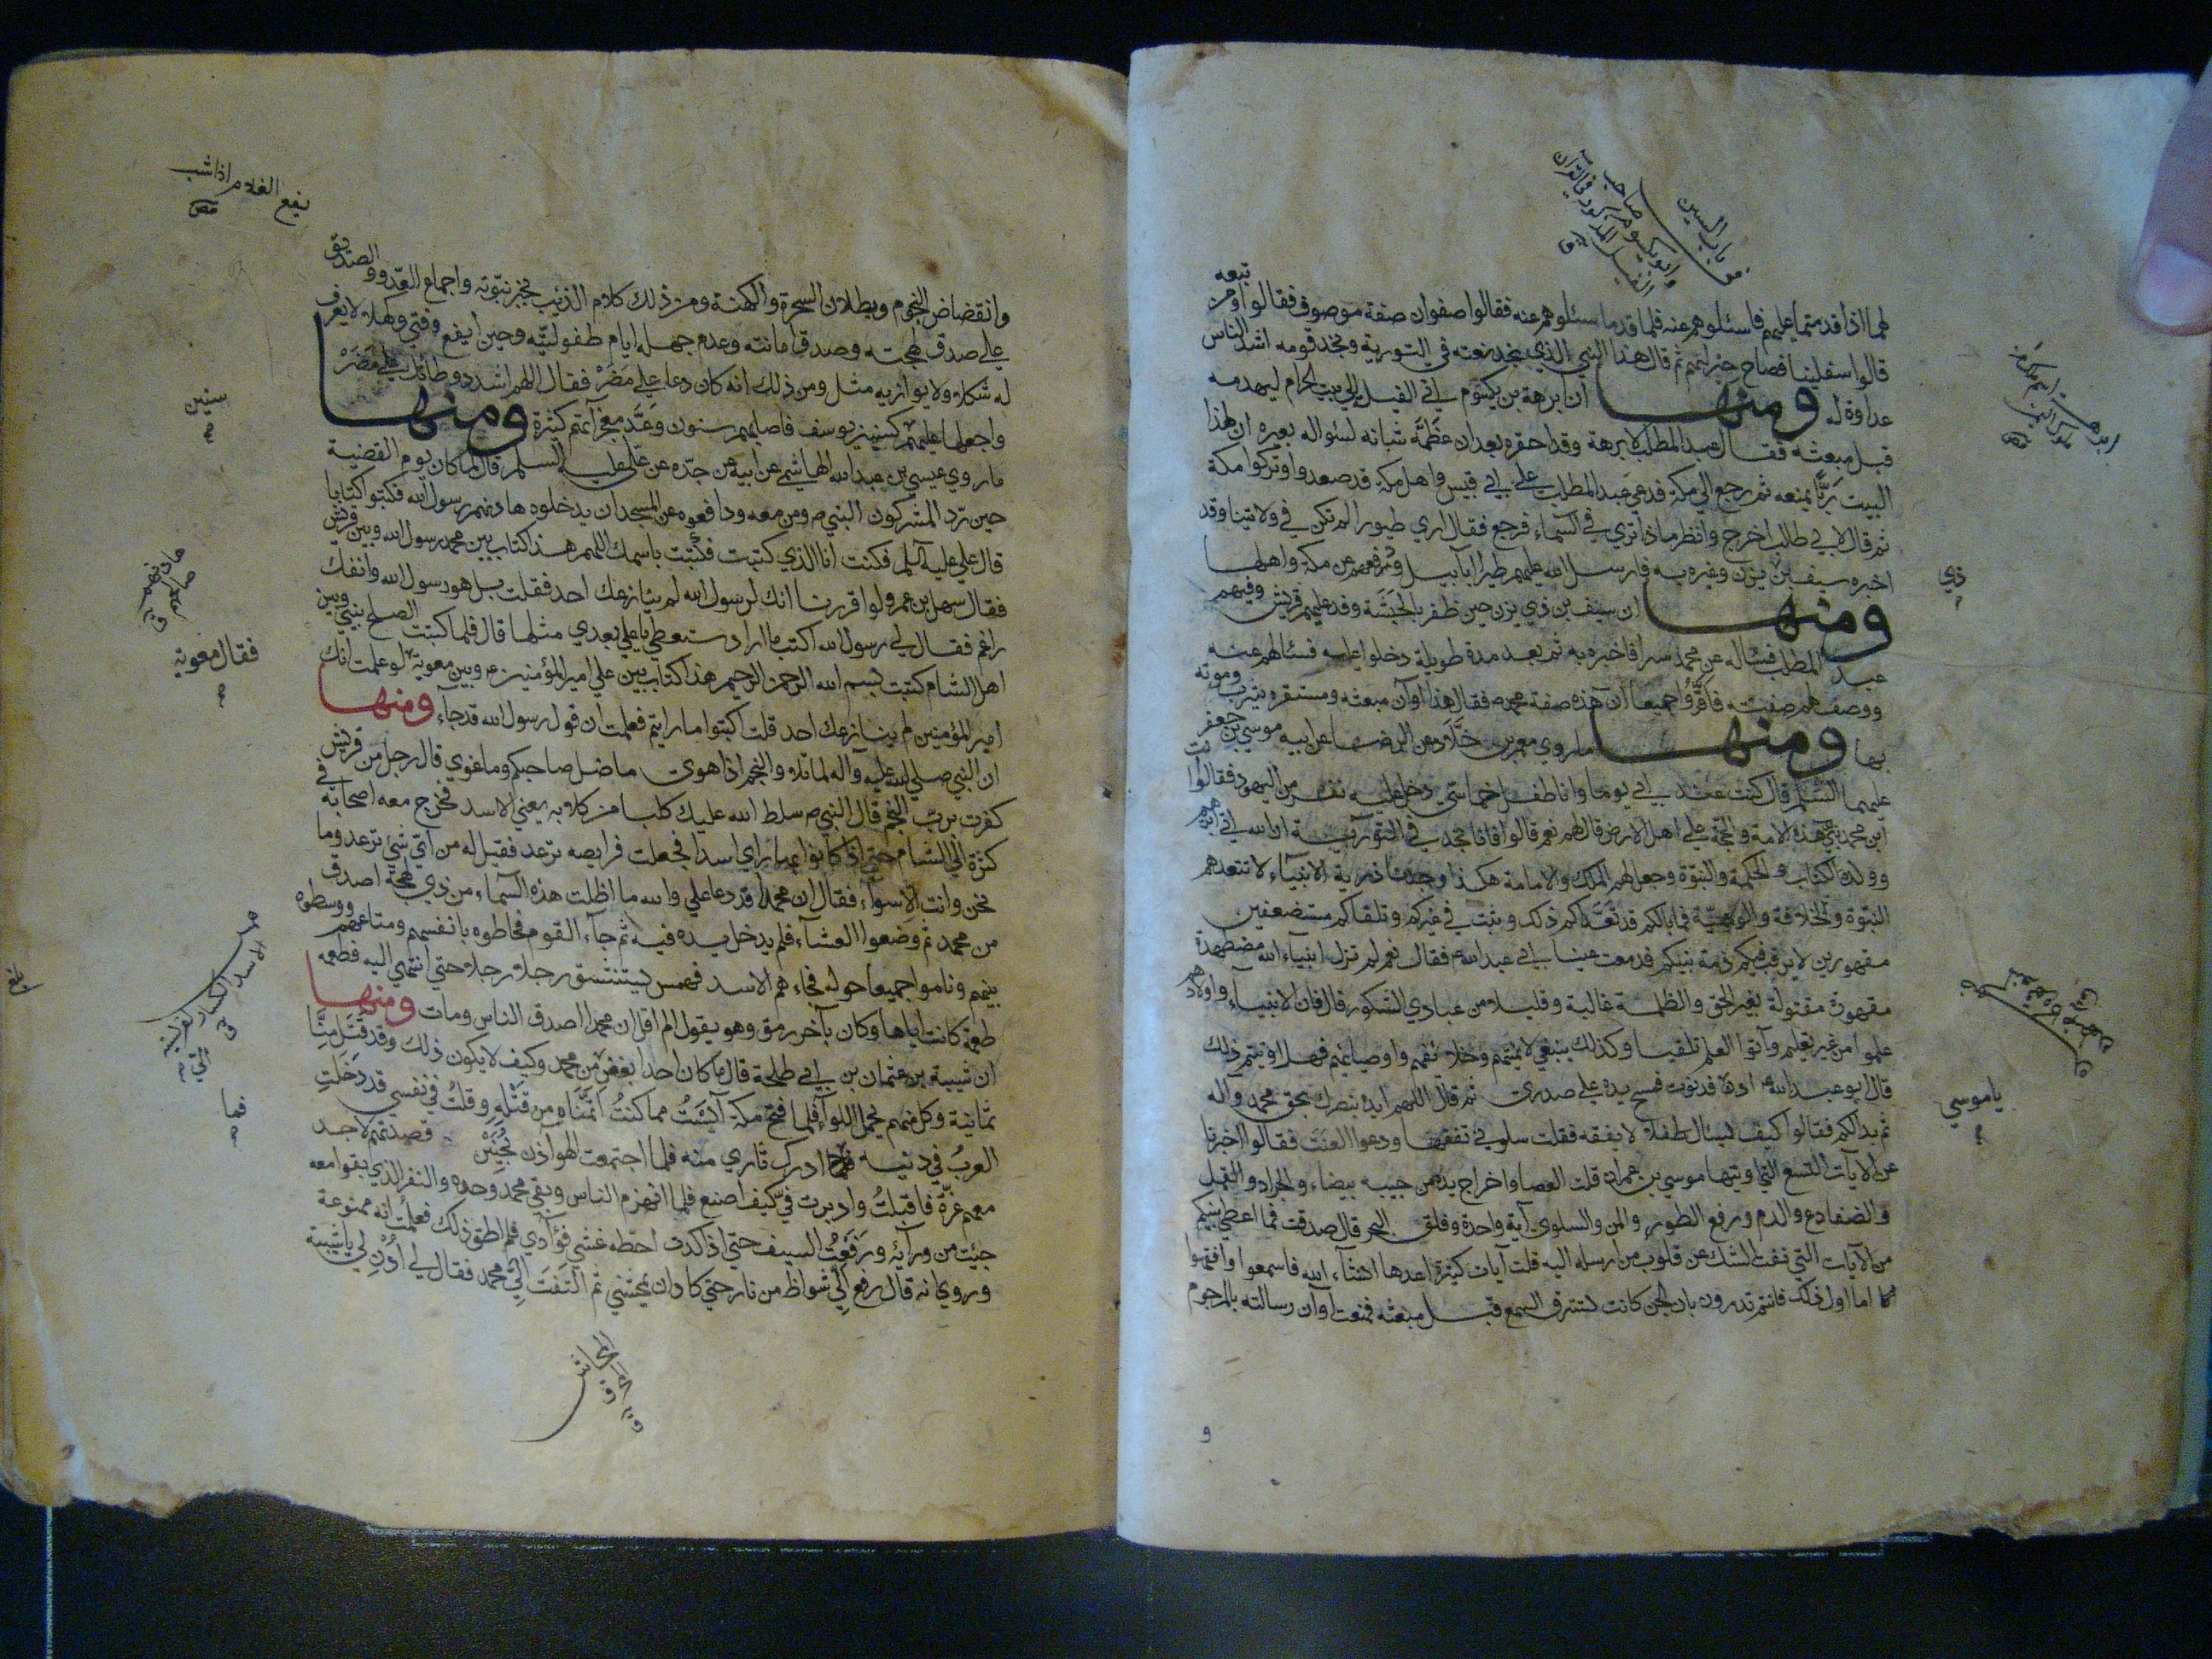 لهما اذا قدمتما عليهم فاسئلوهم عنه فلما قدما سئلوهم عنه فقالوا صفوا صفة موصوف فقالوا ومن تبعه
قالوا سفلتنا فصاح حبر منهم ثم قال هذا النبي الذي نجد نعته في التورية ونجد قومه اشد الناس
عداوة له ومنها ان ابرهة بن يكسوم ابي الفيل الي بيت الحرام ليهدمه
قبل مبعثه فقال عبد المطلب لابرهة وقد احقره بعد ان عظمه شبانه لسئواله بعيره ان لهذا
البيت ربا يمنعه ثم رجع الي مكة فدعي عبد المطلب علي ابي قبيس واهل مكة قد صعدوا وتركوا مكة
ثم قال لابي طالب اخرج وانظر ماذا تري في السماء فرجع فقال اري طيورا لم تكن في ولايتنا وقد
اخبره سيف بن يزن وغيره به فارسل الله عليهم طيرا ابابيل ودفعهم عن مكة واهلها
ومنها ان سيف بن ذي يزن حين ظفر بالحبشة وفد عليهم قريش وفيهم
عبد المطلب فسئاله عن محمد سرا فاخبره به ثم بعد مدة طويلة دخلوا عليه فسئالهم عنه
ووصف لهم صفته فاقروا جميعا ان هذه صفة محمد فقال هذا اوان مبعثه ومستقره يثرب وموته
بها ومنها ما روي معمر بن خلاد عن الرضا عن ابيه موسي بن جعفر
عليهما السلم قال كنت عند ابي يوما وانا طفل خماسي دخل عليه نفر من اليهود فقالوا انت
ابن محمد نبي هذه الامة والحجة علي اهل الارض قال لهم نعم قالوا فانا نجد في التورية ان الله اتي ابرهيم
وولده الكتاب والحكمة والنبوة وجعل لهم الملك والامامة هكذا وجدنا ذرية الانبياء لا تتعدهم
النبوة والخلافة والوصية فما بالكم قد تعداكم ذلك وثبت في غيركم وتلقاكم مستضعفين
مقهورين لا يرقب فيكم ذمة نبيكم فدمعت عينا ابي عبد الله فقال نعم لم تزل انبياء الله مضطهدة
مقهورة مقتولة بغير الحق والظلمة غالبة وقليلا من عبادي الشكور قال فان الانبياء واولادهم
علموا من غير تعليم واتوا العلم تلقينا وكذلك ينبغي لائمتهم وخلائفهم واوصيائهم فهل اوتيتم ذلك
قال ابو عبد الله ادنه فدنوت فمسح يده علي صدري ثم قال اللهم ايده بنصرك بحق محمد واله
ثم بدالكم فقالوا كيف نسال طفلا لا يفقه فقلت سلوني تفقها ودعوا العنت فقالوا اخبرنا
عن الايات التسع التي اوتيها موسي بن عمران قلت العصا واخراج يده من جيبه بيضاء والجراد والقمل
والضفادع والدم ورفع الطور والمن والسلوي اية واحدة وفلق البحر قال صدقت فما اعطي نبيكم
من الايات التي نفت الشك عن قلوب من ارسله اليه قلت ايات كثيرة اعدها انشاء الله فاسمعوا وافقهوا
اما اول ذلك فانتم تدرون بان الجن كانت تسترق السمع قبل مبعثه فمنعت اوان رسالته بالرجوم
من باب السين
صاحب
الفيل المذكور في القران
ذي
يا موسي
و
وانقضاض النجوم وبطلان السحرة والكهنة ومن ذلك كلام الذئب بخبر نبوته واجماع العدو والصديق
علي صدق لهجته وصدق امانته وعدم جهله ايام طفوليته وحين ايفع وفتي وكهلا لا يعرف
له شكلا ولا يوازيه مثل ومن ذلك انه كان دعا علي مضر فقال اللهم اشدد وطائك علي مضر
واجعلها عليهم كسنين يوسف فاصابهم سنون وعد معجزاتهم كثيرة ومنها
ما روي عيسي بن عبد الله الهاشمي عن ابيه عن جده عن علي عليه السلم قال لما كان يوم القضية
حين رد المشركون النبي ومن معه ودافعوه عن المسجد ان يدخلوه هادنهم رسول الله فكتبوا كتابا
قال علي عليه السلم فكنت انا الذي كتبت فكتبت باسمك اللهم هذا كتاب بين محمد رسول الله وبين قريش
فقال سهل بن عمرو لو اقررنا انك لرسول الله لم ينازعك احد فقلت بل هو رسول الله وانفك
راغم فقال لي رسول الله اكتب ما اراد ستعطي يا علي بعدي مثلها قال فلما كتبت الصلح بيني وبين
اهل الشام كتبت بسم الله الرحمن الرحيم هذا كتاب بين علي امير المؤمنين وبين معوية لو علمت انك
امير المؤمنين لم ينازعك احد قلت اكتبوا ما رايتم فعلمت ان قول رسول الله قد جاء ومنها
ان النبي صلي الله عليه وآله لما تلا والنجم اذا هوي ما ضل صاحبكم وما غوي قال رجل من قريش
كفرت برب النجم قال النبي سلط الله عليك كلبا من كلابه يعني الاسد فخرج معه اصحابه في
كثرة الي الشام حتي اذا كانوا بها راي اسدا فجعلت فرايصه ترعد فقيل له من اي شي ترعد وما
نحن وانت الا سواء فقال ان محمدا قد دعا علي والله ما اظلت هذه السماء من ذي لهجة اصدق
من محمد ثم وضعوا العشاء فلم يدخل يده فيه ثم جاء القوم فحاطوه بانفسهم ومتاعهم ووسطوه
بينهم وناموا جميعا حوله فجاءهم الاسد فهمس يستنشق رجلا رجلا حتي انتهي اليه فطعمه
طعمة كانت اياها وكان بآخر رمق وهو يقول الم اقل ان محمدا اصدق الناس ومات ومنها
ان شيبة بن عثمان بن ابي طلحة قال ما كان احدا بغض من محمد وكيف لا يكون ذلك وقد قتل منا
ثمانية وكل منهم يحمل اللواء فلما فتح مكة آيست مما كنت اتمناه من قتله وقلت في نفسي قد دخلت
العرب في دينه ادرك ثاري منه فلما اجتمعت الهوازن بحنين قصدتهم لاجد
معهم غرة فاقبلت وادبرت في كيف اصنع فلما انهزم الناس وبقي محمد وحده والنفر الذي بقوا معه
جئت من ورائه ورفعت السيف حتي اذا كدت احطه غشي فؤادي فلم اطق ذلك فعلمت انه ممنوعة
وروي انه قال رفع الي شواظ من نار حتي كاد ان يمحشني ثم التفت الي محمد فقال لي ادن لي يا شيبة
يفع الغلام اذا شب
سنين
فقال معوية
فما
بلغ